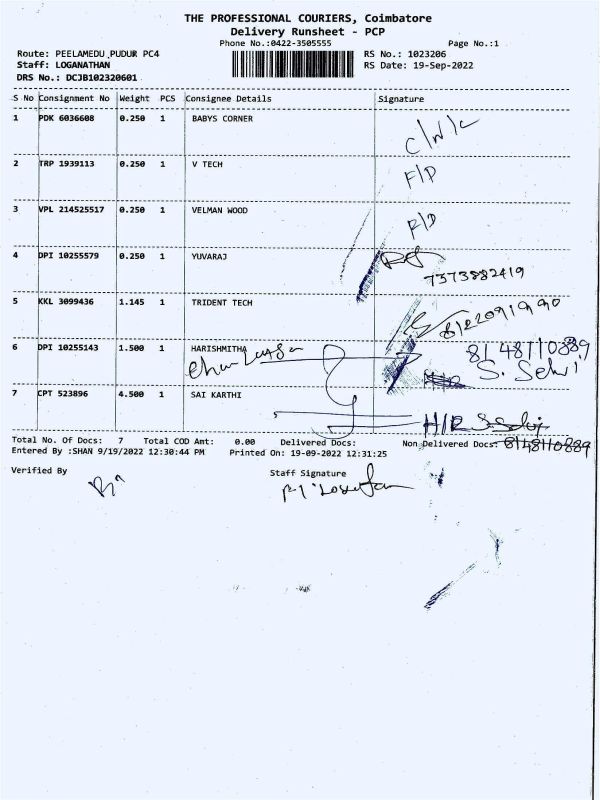 THE PROFESSIONAL COURIERS, Coimbatore
Delivery Runsheet - PCP
Phone No.:0422-3505555 Page No.:1
Route: PEELAMEDU,PUDUR PC4 RS No.: 1023206
Staff: LOGANATHAN RS Date: 19-Sep-2022
DRS No.: DCJB102320601
S No Consignment No Weight PCS Consignee Details Signature
1 PDK 6036608 0.250 1 BABYS CORNER C/N/L
2 TRP 1939113 0.250 1 V TECH F/D
3 VPL 214525517 0.250 1 VELMAN WOOD F/D
4 DPI 10255579 0.250 1 YUVARAJ
7373882419
5 KKL 3099436 1.145 1 TRIDENT TECH
6 DPI 10255143 1.500 1 HARISHMITHA 8148110889
S. Selvi
7 CPT 523896 4.500 1 SAI KARTHI
H/R S.Selvi
Total No. Of Docs: 7 Total COD Amt: 0.00 Delivered Docs: Non Delivered Docs: 8148110889
Entered By :SHAN 9/19/2022 12:30:44 PM Printed On: 19-09-2022 12:31:25
Verified By Staff Signature